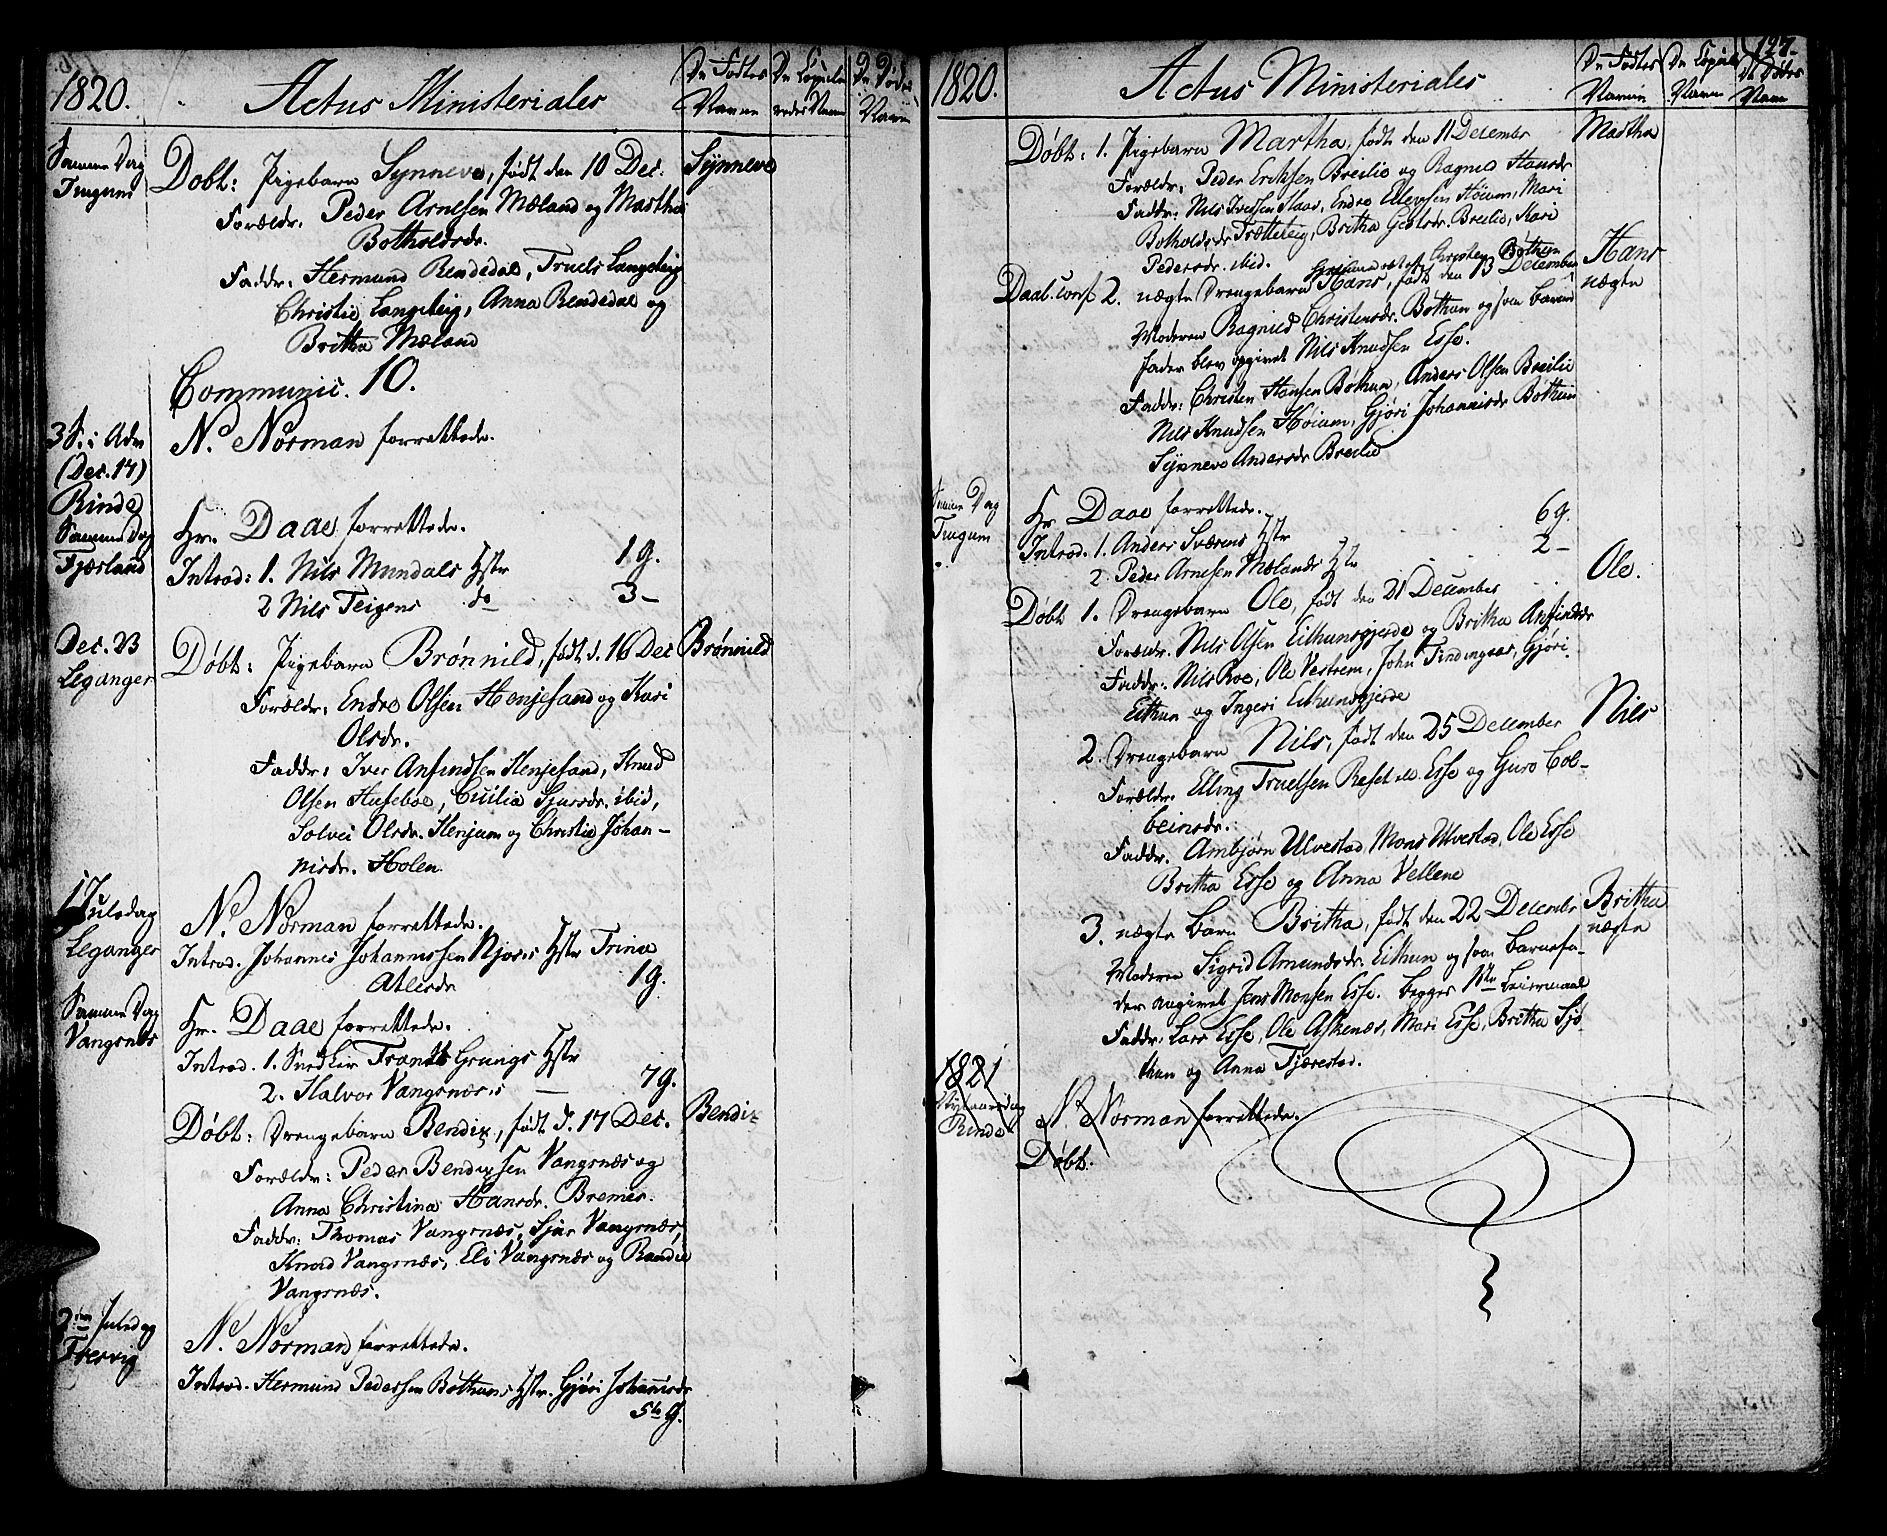 1820.
Actus Ministeriales
De Fødtes Navne
De Copuleredes Navne
De Dødes Navne
Samme Dag
Tingum
Døbt: Pigebarn Synneve, født den 10 Dec. Synneve
Forældr. Peder Arnesen Mæland og Martha
Botholdsdr.
Faddr. Hermund Rendedal, Truels Langeteig
Christie Langeteig, Anna Rendedal og
Britha Mæland
Communic. 10.
3 S. i Adv
(Dec. 17)
Rinde
N. Norman forrettede.
Samme Dag
Fjærland
Hr. Daae forrettede.
Introd: 1. Nils Mundals Hstr 1 g.
2 Nils Teigens do 3 –
Dec. 23
Leganger
Døbt: Pigebarn Brønnild, født d. 16 Dec Brønnild
Forældr. Endre Olsen Henjesand og Kari
Olsdr.
Faddr: Iver Anfindsen Henjesand, Knud
Olsen Husebøe, Cicilia Sjursdr. ibid,
Solvei Olsdr. Henjum og Christie Johan-
nisdr. Holen.
1 Juledag
Leganger
N. Norman forrettede.
Introd. Johannes Johannessen Njøs's Hstr Trine
Atlesdr 1 g.
Samme Dag
Vangsnæs
Hr. Daae forrettede.
Introd. 1. Snedker Frants Grungs Hstr
2. Halvor Vangsnæs's — 7 g.
Døbt: Drengebarn Bendix, født d. 17 Dec. Bendix
Forældr: Peder Bendixsen Vangsnæs og
Anna Christina Hansdr. Bremer.
Faddr: Thomas Vangsnæs, Sjur Vangsnæs,
Knud Vangsnæs, Eli Vangsnæs og Randie
Vangsnæs.
2den Juledag
Tresvig
N. Norman forrettede.
Introd. Hermund Pedersen Bothuns Hstr. Gjøri Johannisdr
5te g.
127.
1820.
Actus Ministeriales
De Fødtes Navne
De Copule Navne
De Dødes Navne
Døbt: 1. Pigebarn Martha, født den 11 December Martha
Forældr: Peder Erichsen Breilie og Ragnild Hansdr
Faddr: Nils Iversen Slaar, Endre Ellensen Høium, Mari
Botholdsdr Tætteteig, Britha Giertsdr. Breilie, Kari
Pedersdr. ibid.
Christen Bothun
Daab. conf 2. uægte Drengebarn Hans, født den 13 December Hans
uægte
Moderen Ragnild Christensdr. Bothun og som Barne
fader blev opgivet Nils Knudsen Esse.
Faddr: Christen Hansen Bøthun, Anders Olsen Breilie
Nils Knudsen Høium, Gjøri Johannisdr Bothun
Synneve Andersdr Breilie
Samme Dag
Tingum
Hr Daae forrettede.
Introd. 1. Anders Sværens Hstr 6 g.
2. Peder Arnesen Mælands Hstr 2 –
Døbt 1. Drengebarn Ole, født den 21 December Ole.
Forældr. Nils Olsen Eithunsgjerde og Britha Anfindsdr
Faddr: Nils Roe, Ole Vestrem, John Tindingaas, Gjøri
Eithun og Ingeri Eithunsgjerde
2. Drengebarn Nils, født den 25 December Nils
Forældr. Elling Truelsen Reset ell. Esse og Guro Col-
beinsdr.
Faddr. Ambjørn Ulvestad, Mons Ulvestad, Ole Esse
Britha Esse og Anna Vellene
3. uægte Barn Britha, født den 22 Decembr Britha
uægte
Moderen Sigrid Amundsdr. Eithun og som Barnefa-
der angivet Jens Monsen Esse. begges 1ste Leiermaal
Faddr: Lars Esse, Ole Askenæs, Mari Esse, Britha Sjø-
thun og Anna Fjærestad.
1821
Nytaarsdag
Rinde
N. Norman forrettede.
Døbt.